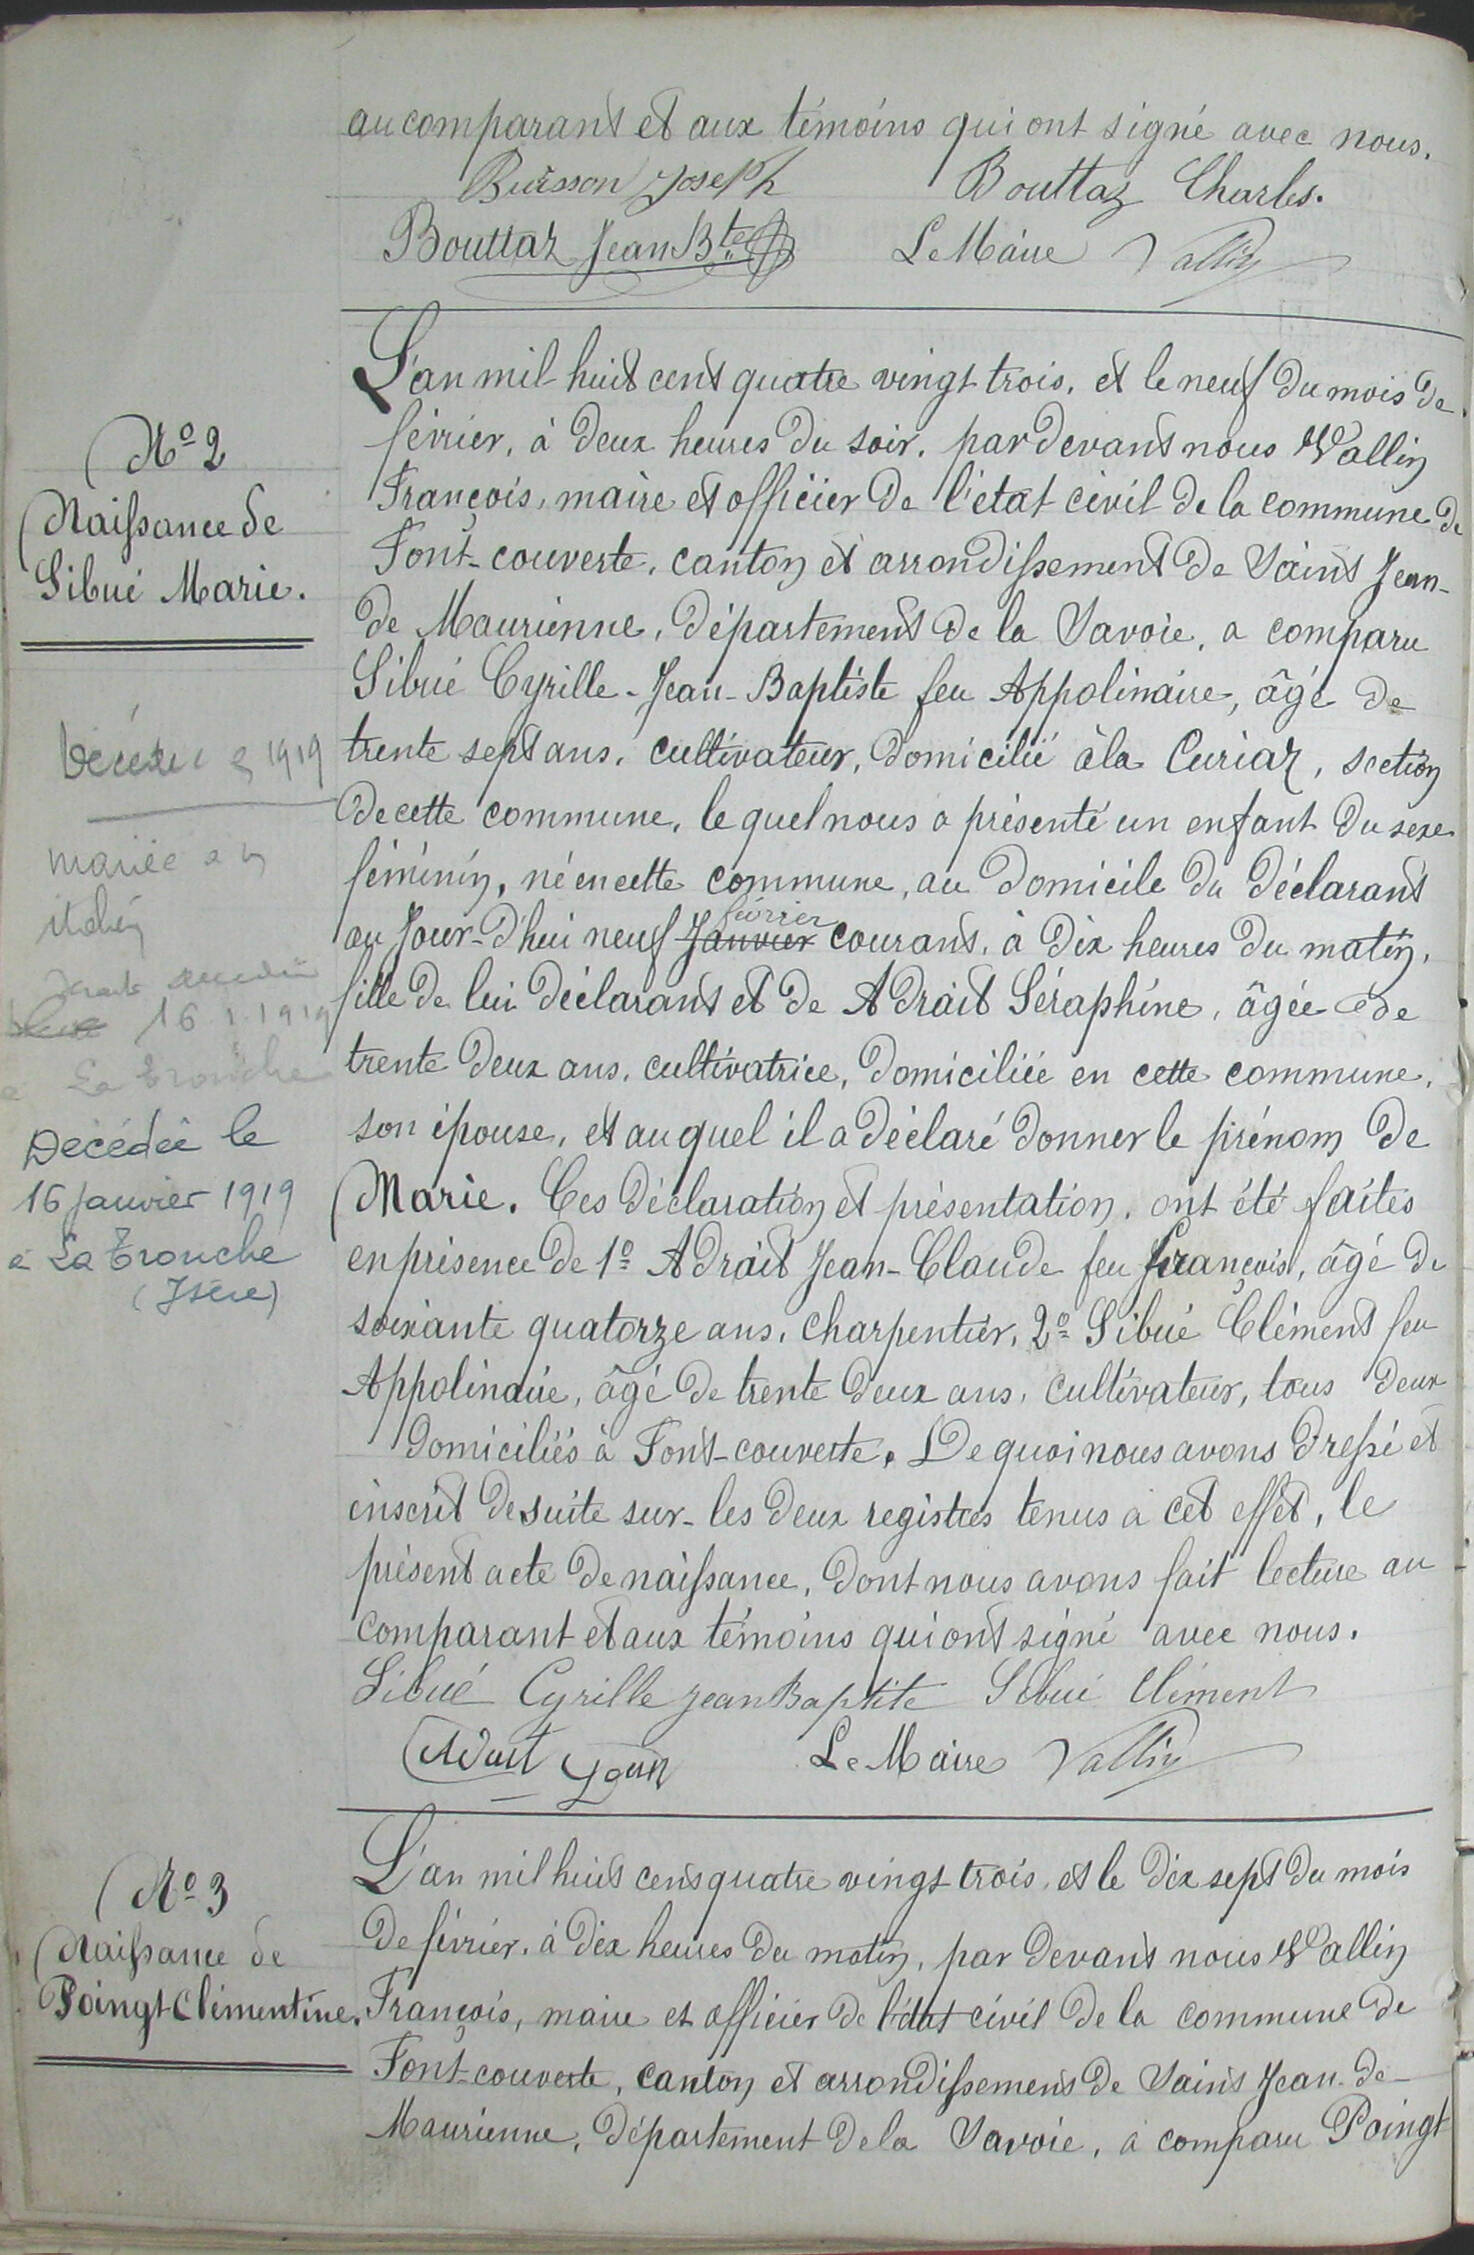 au comparant et aux témoins qui ont signé avec nous.
Buisson Joseph Bouttaz Charles.
Bouttaz Jean Bte Le Maire Vallin
Nº 2
Naissance de
Sibué Marie.
L'an mil huit cent quatre vingt trois, et le neuf du mois de
février, à deux heures du soir, par devant nous Vallin
François, maire et officier de l'état civil de la commune de
Font-couverte, canton et arrondissement de Saint Jean-
de Maurienne, département de la Savoie, a comparu
Sibué Cyrille-Jean-Baptiste feu Appolinaire, âgé de
trente sept ans, cultivateur, domicilié à la Curiaz, section
de cette commune, lequel nous a présenté un enfant du sexe
féminin, né en cette commune, au domicile du déclarant
au Jour-d'hui neuf Janvier février courant, à dix heures du matin,
fille de lui déclarant et de Adrait Séraphine, âgée de
trente deux ans, cultivatrice, domiciliée en cette commune,
son épouse, et auquel il a déclaré donner le prénom de
Marie. Ces déclaration et présentation, ont été faites
en présence de 1º Adrait Jean-Claude feu François, âgé de
soixante quatorze ans, charpentier, 2º Sibué Clément feu
Appolinaire, âgé de trente deux ans, cultivateur, tous deux
domiciliés à Font-couverte. De quoi nous avons dressé et
inscrit de suite sur-les deux registres tenus à cet effet, le
présent acte de naissance, dont nous avons fait lecture au
comparant et aux témoins qui ont signé avec nous.
Sibué Cyrille jean Baptite Sibué Clément
Adrait Jean Le Maire Vallin
1919
mariée a un
16.1.1919
a La Tronche
Décédée le
16 janvier 1919
à La Tronche
(Isère)
Nº 3
Naissance de
Poingt Clémentine.
L'an mil huit cent quatre vingt trois, et le dix sept du mois
de février, à dix heures du matin, par devant nous Vallin
François, maire et officier de l'état civil de la commune de
Font-couverte, canton et arrondissement de Saint Jean-de-
Maurienne, département de la Savoie, a comparu Poingt